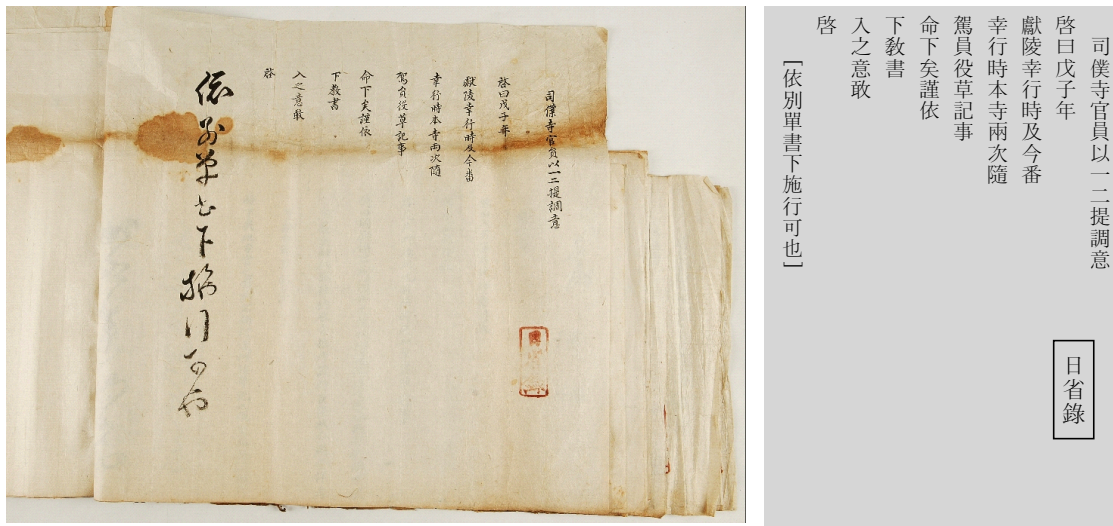 司僕寺官員以一二提調意
啓曰戊子年
獻陵幸行時及今番
幸行時本寺兩次隨
駕員役草記事
命下矣謹依
下敎書
入之意敢
啓
依別單書下施行可也
司僕寺官員以一二提調意
啓曰戊子年
獻陵幸行時及今番
幸行時本寺兩次隨
駕員役草記事
命下矣謹依
下敎書
入之意敢
啓
[依別單書下施行可也]
日省錄